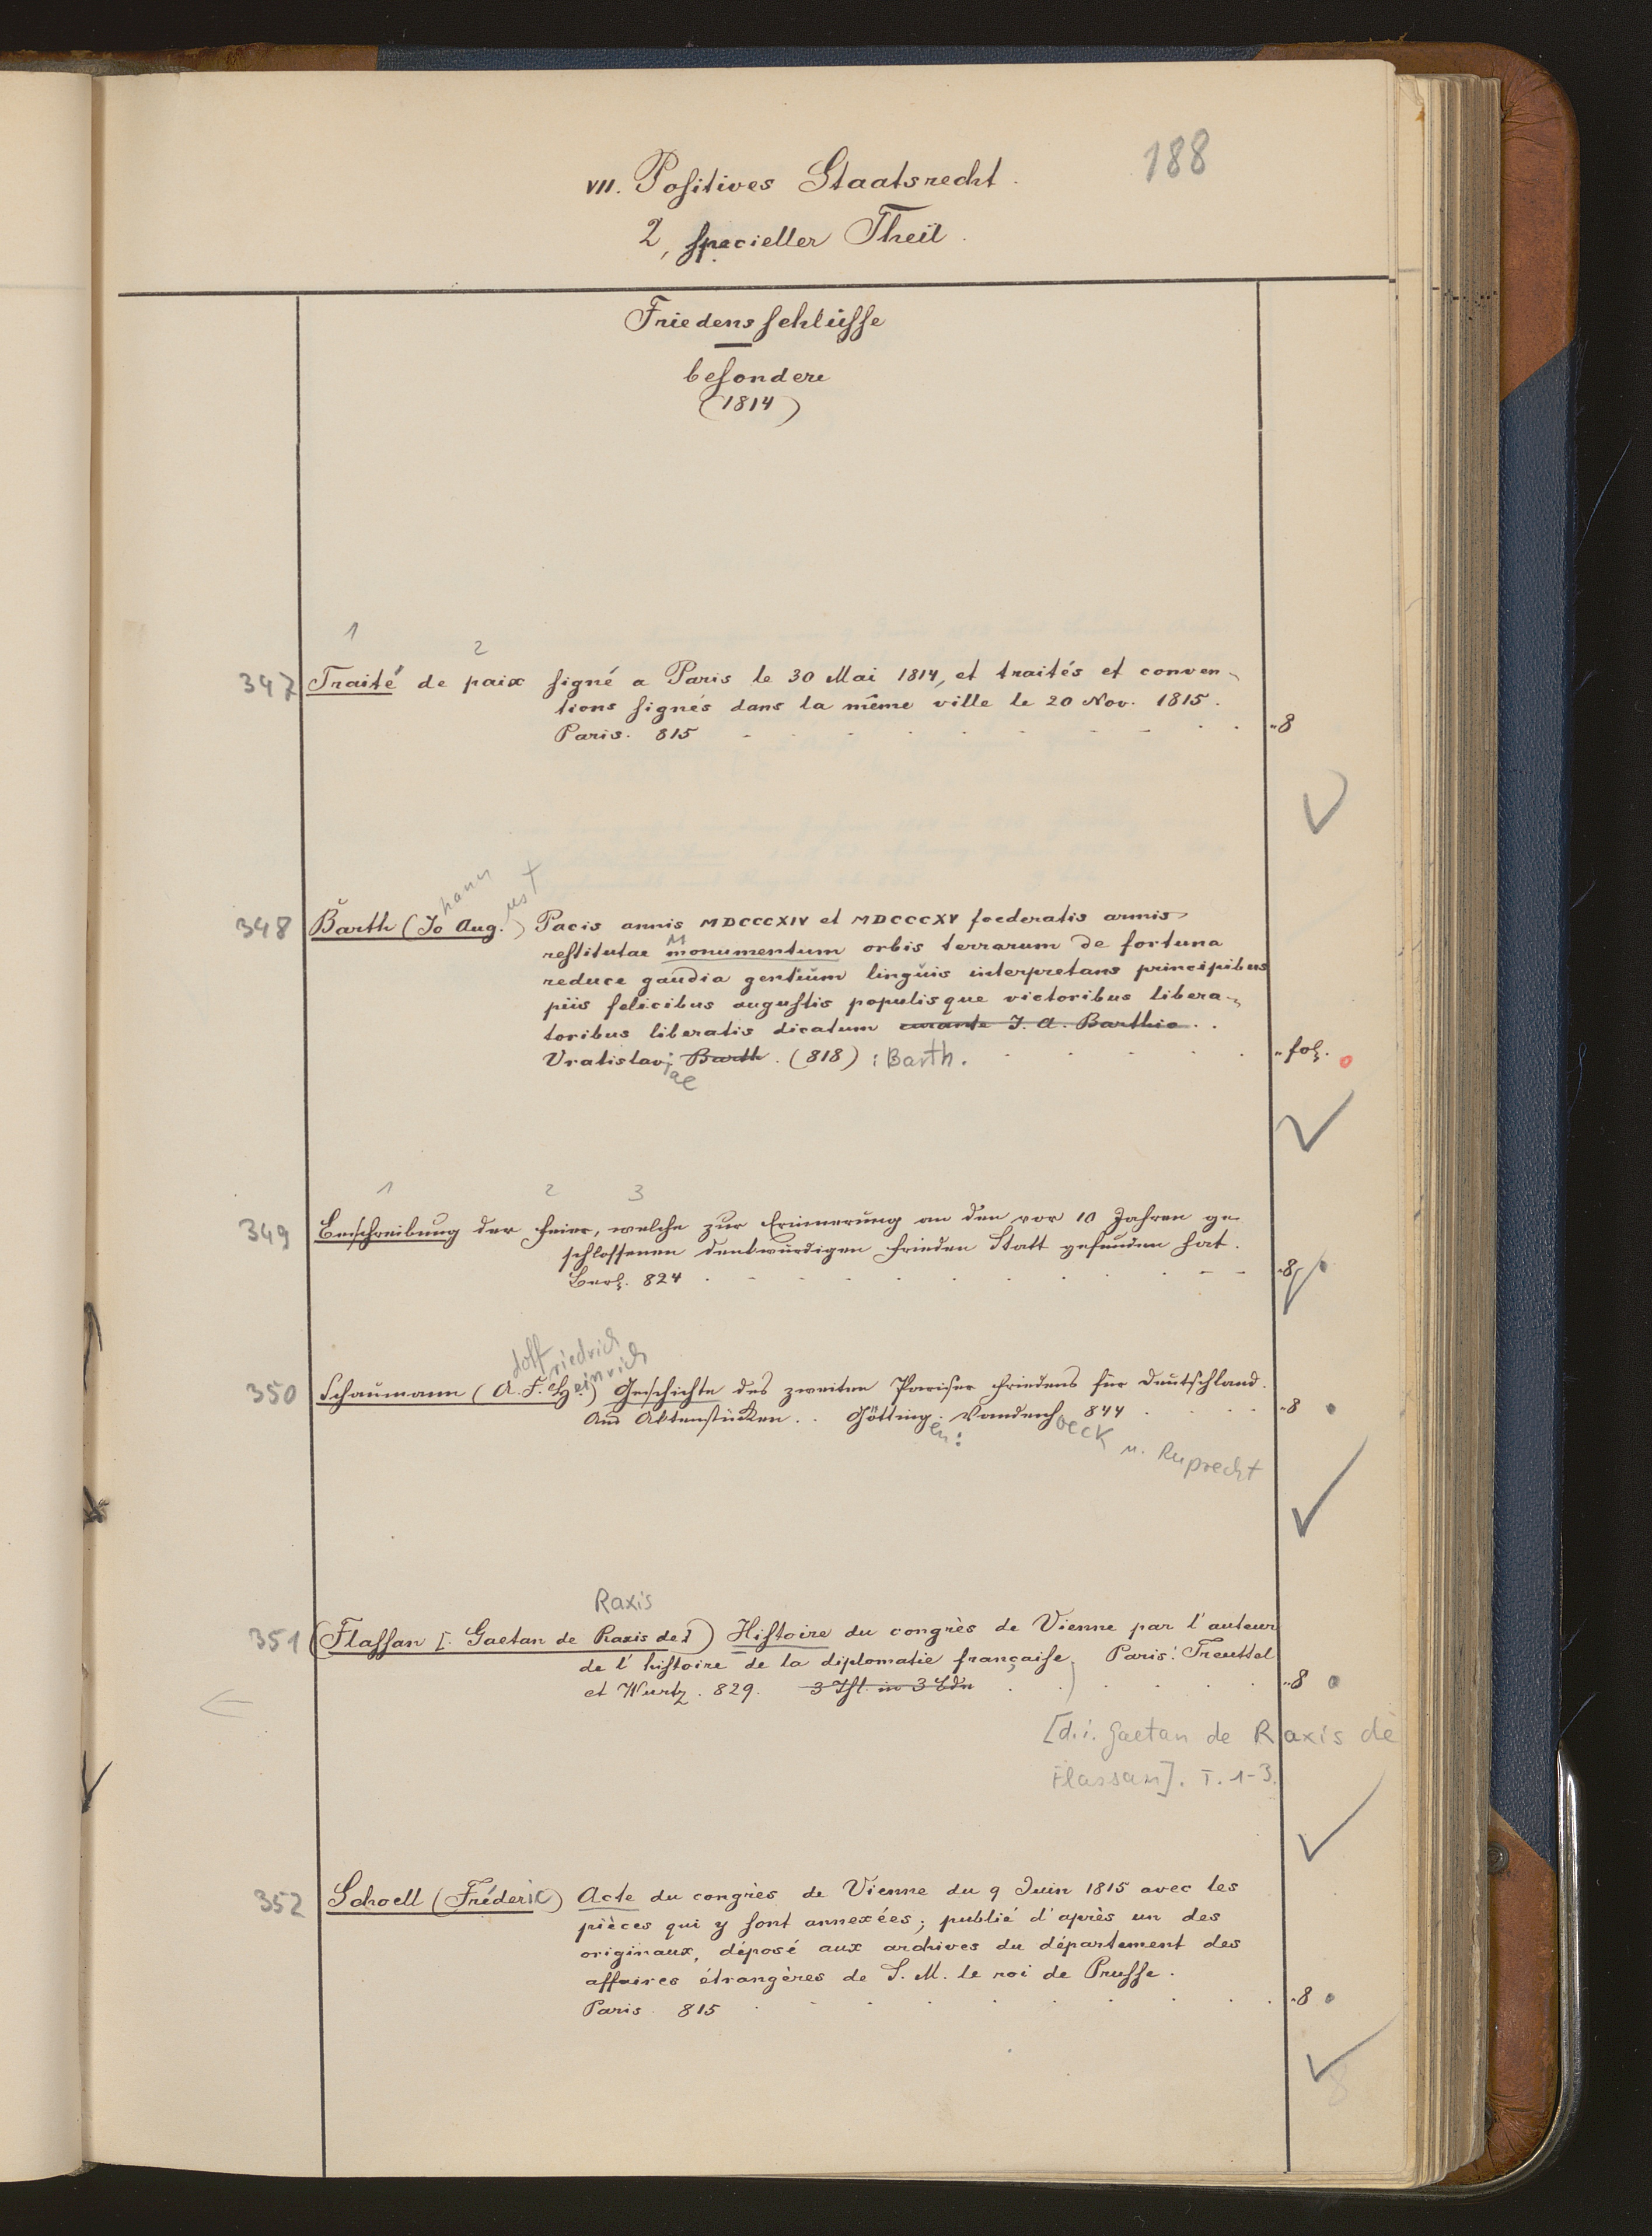 188
VII. Positives Staatsrecht.
2, specieller Theil.
Friedensschlüsse
besondere
(1814)
1 2
347 Traité de paix signé a Paris le 30 Mai 1814, et traités et conven-
tions signés dans la même ville le 20 Nov. 1815.
Paris. 815 - - - - - - - - - "8
hann ust
348 Barth (Jo Aug.) Pacis annis MDCCCXIV et MDCCCXV foederatis armis
restitutae Monumentum orbis terrarum de fortuna
reduce gaudia gentium linguis interpretans principibus
piis felicibus augustis populisque victoribus libera-
toribus liberatis dicatum curante J. A. Barthio . .
Vratislaviae Barth. (818) : Barth. . . . . . "fol.
1 2 3
349 Beschreibung der Feier, welche zur Erinnerung an den vor 10 Jahren ge-
schlossenen denkwürdigen Frieden Statt gefunden hat.
Berl. 824 . - - . . . . . . - - "8
dolf riedrich einrich
350 Schaumann (A. F. H.) Geschichte des zweiten Pariser Friedens für Deutschland.
Aus Aktenstücken. . Göttingen: Vandenhoeck u. Ruprecht 844 . . . . "8
Raxis
351 (Flassan [. Gaetan de Raxis de]) Histoire du congrès de Vienne par l'auteur
de l'histoire de la diplomatie française. Paris: Treuttel
et Wurtz. 829. 3 Thl. in 3 Bdn . . . . . "8
[d.i. Gaetan de Raxis de
Flassan]. T. 1-3.
352 Schoell (Fréderic) Acte du congrès de Vienne du 9 Juin 1815 avec les
pièces qui y sont annexées; publié d'après un des
originaux, déposé aux archives du département des
affaires étrangères de S. M. le roi de Prusse.
Paris. 815 . - . . . . . . . . "8
8